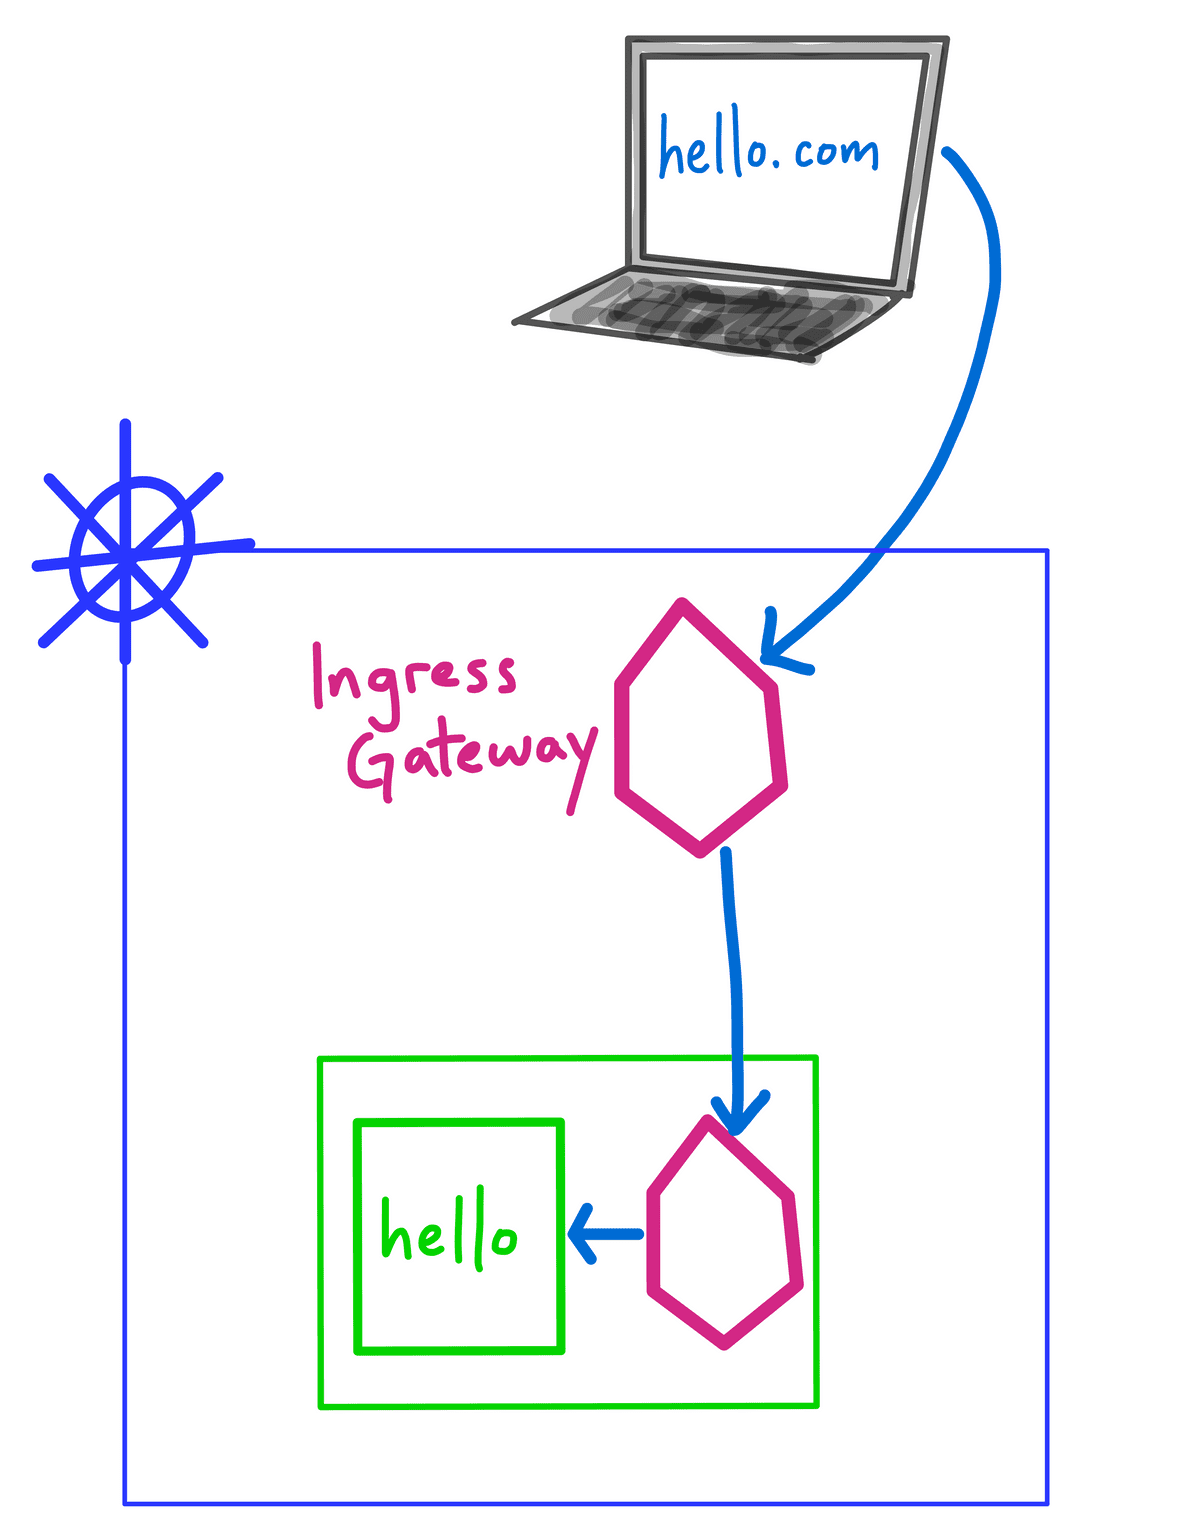 hello.com
Ingress
Gateway
hello